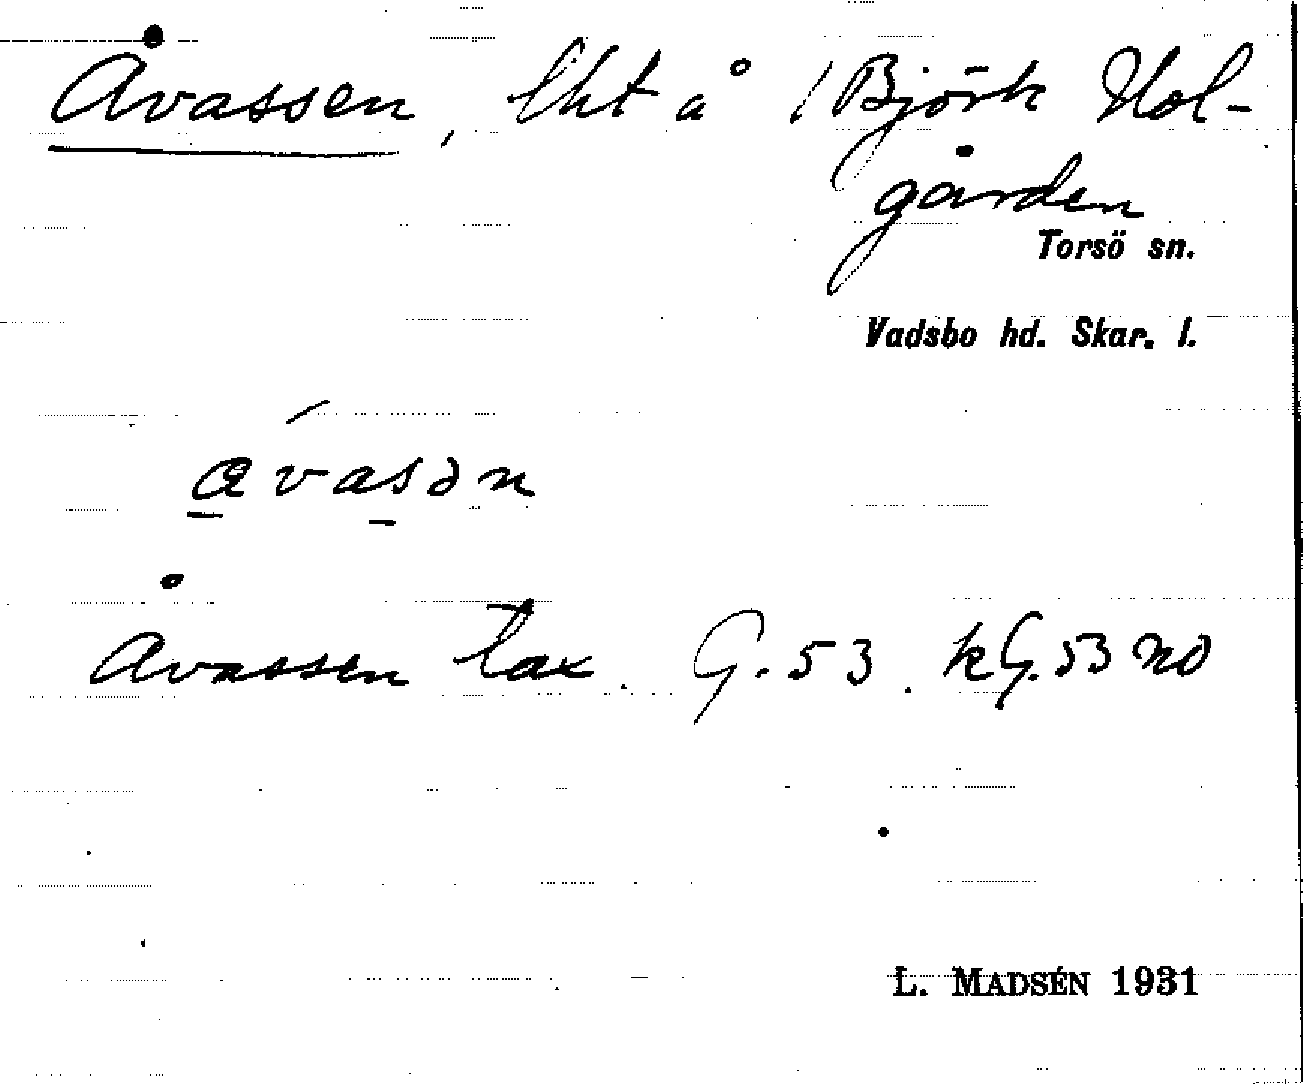 Åvassen, lht å 1 Björk Hol-
gården
Torsö sn.
Vadsbo hd. Skar. l.
avasən
Åvassen tax. G. 53. kG. 53 NO
L. MADSÉN 1931